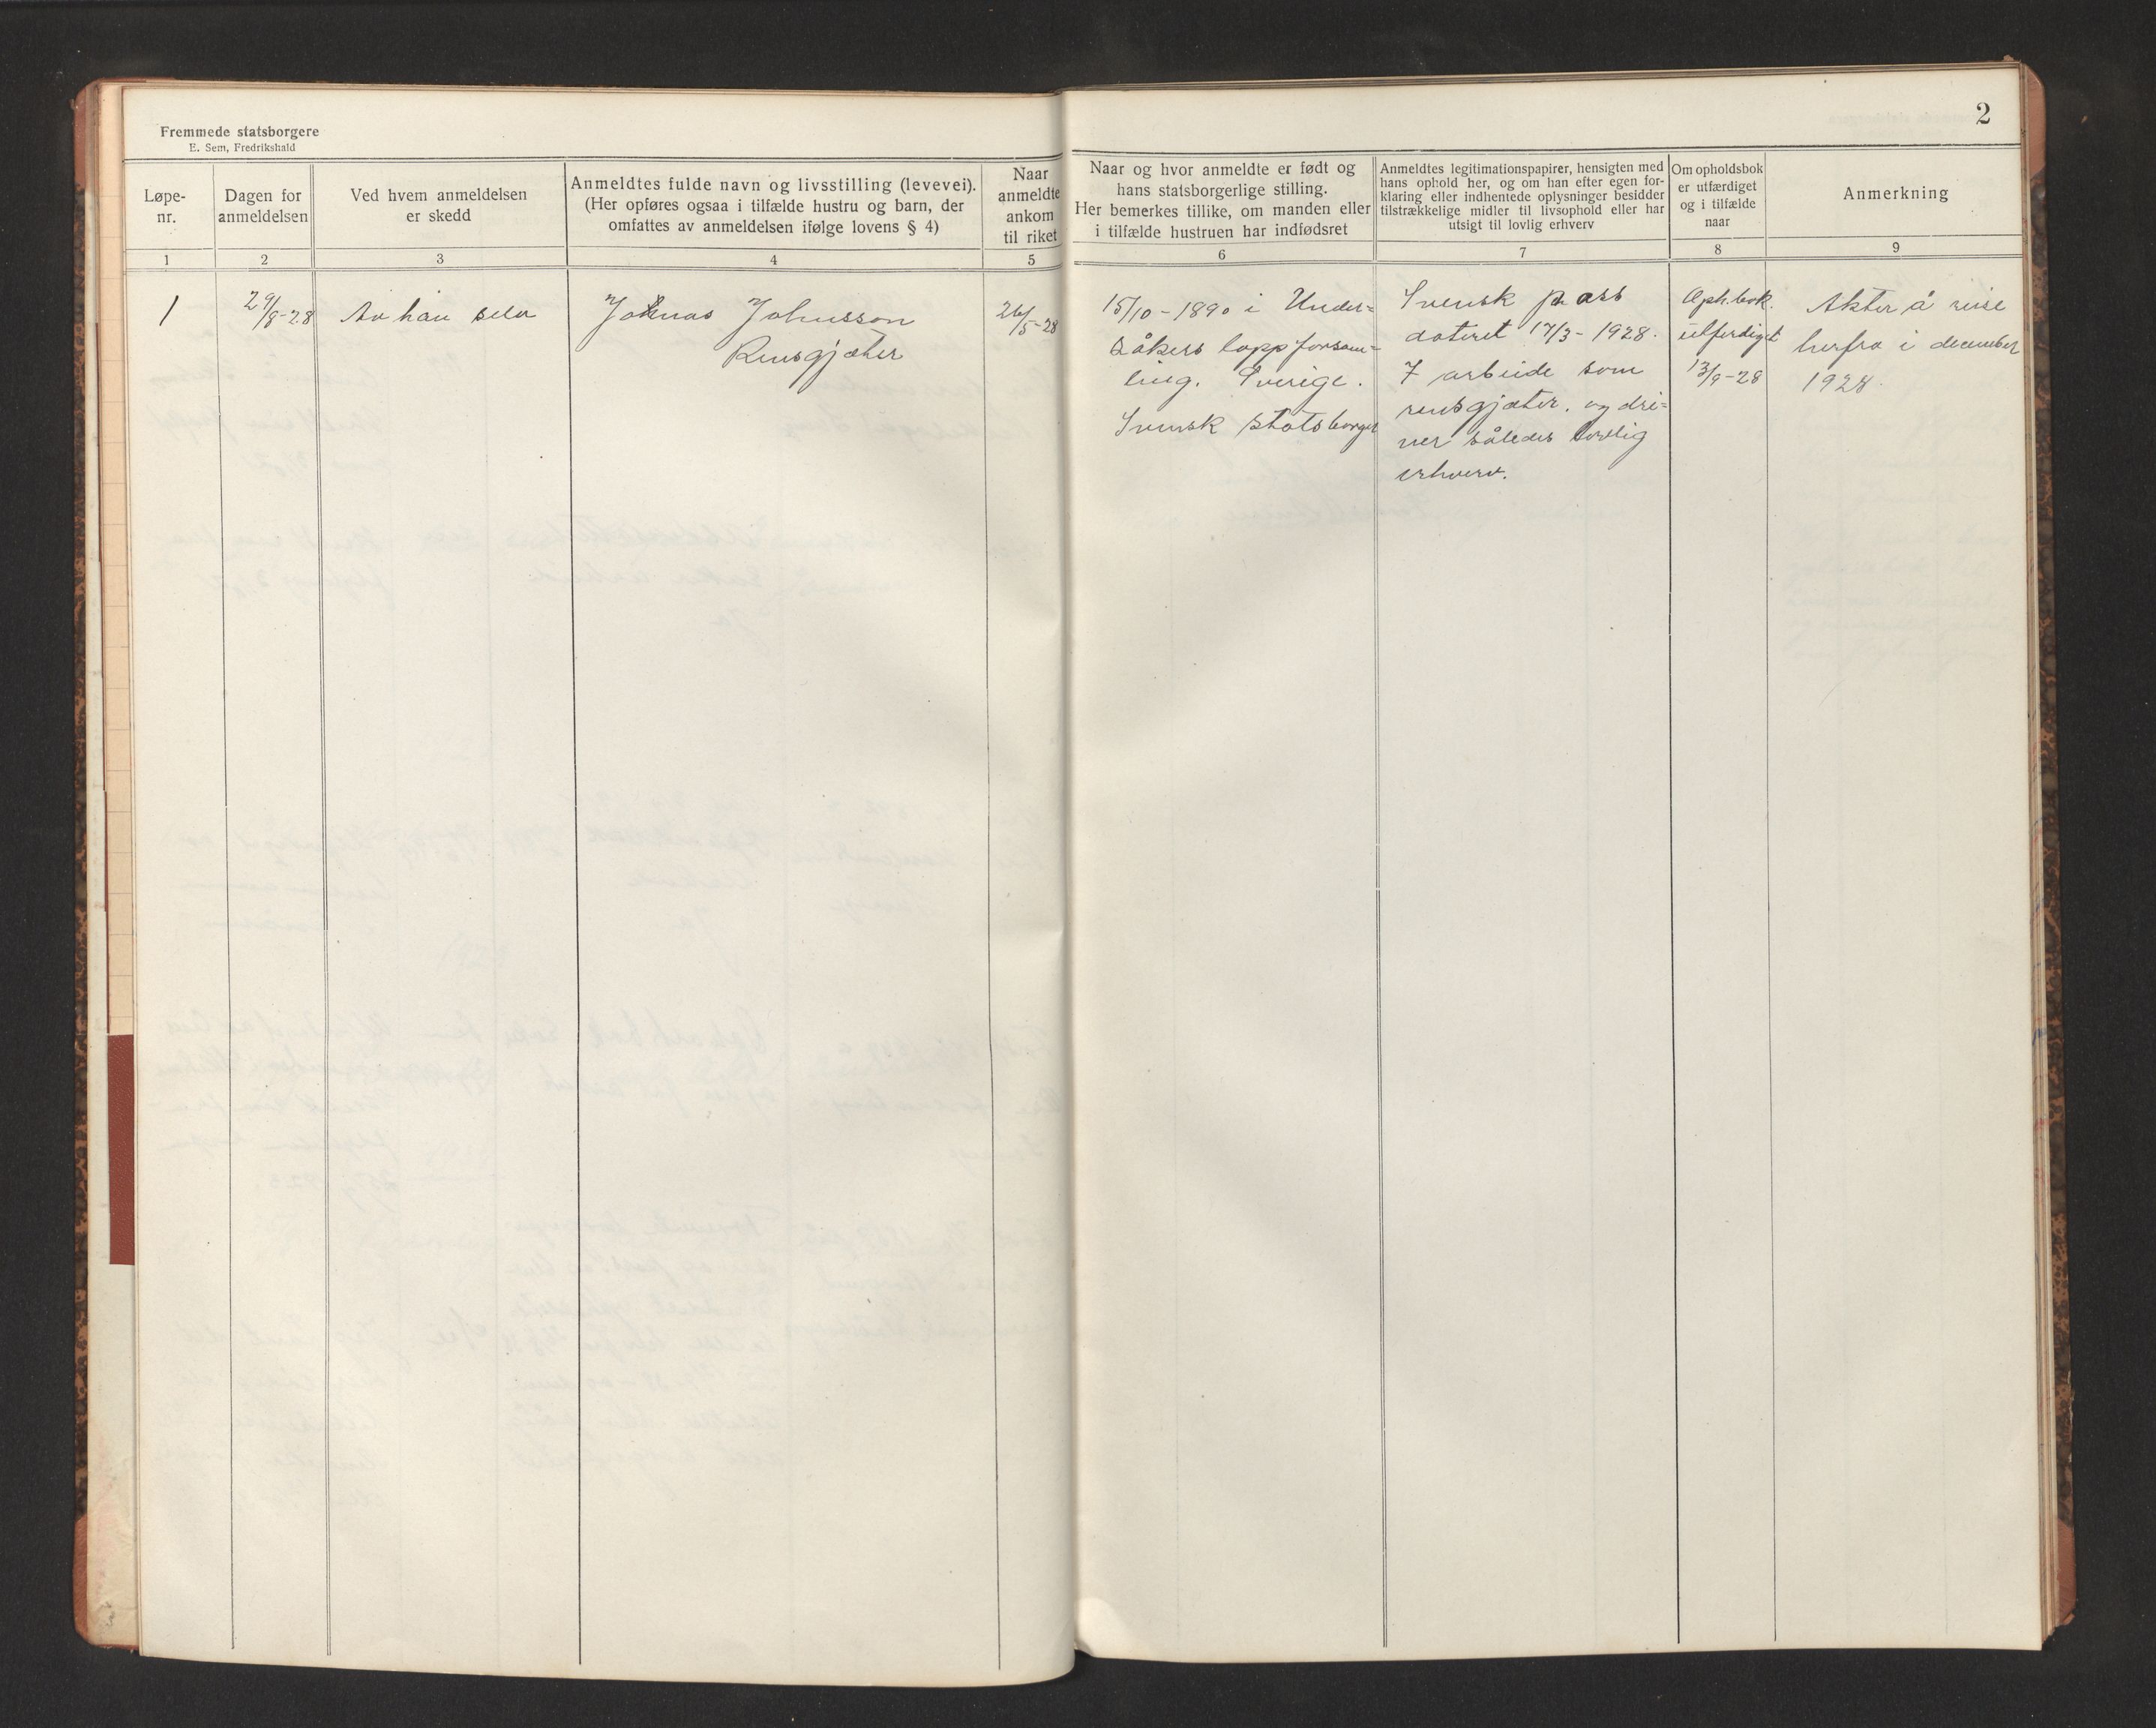 2
Fremmede statsborgere
E. Sem, Fredrikshald
Løpe-
nr.
Dagen for
anmeldelsen
Ved hvem anmeldelsen
er skedd
Anmeldtes fulde navn og livsstilling (levevei).
(Her opføres ogsaa i tilfælde hustru og barn, der
omfattes av anmeldelsen ifølge lovens § 4)
Naar
anmeldte
ankom
til riket
Naar og hvor anmeldte er født og
hans statsborgerlige stilling.
Her bemerkes tillike, om manden eller
i tilfælde hustruen har indfødsret
Anmeldtes legitimationspapirer, hensigten med
hans ophold her, og om han efter egen for-
klaring eller indhentede oplysninger besidder
tilstrækkelige midler til livsophold eller har
utsigt til lovlig erhverv
Om opholdsbok
er utfærdiget
og i tilfælde
naar
Anmerkning
1
2
3
4
5
6
7
8
9
1
29/8-28
Av han selv
Jonas Johnsson
Rensgjæter
26/5-28
15/10-1890 i Under-
såkers lappforsam-
ling. Sverige.
Svensk statsborger
Svensk pass
dateret 17/3-1928.
I arbeide som
rensgjæter, og dri-
ver således lovlig
erhverv.
Oph.bok.
utferdiget
13/9-28
Akter å reise
herfra i december
1928.